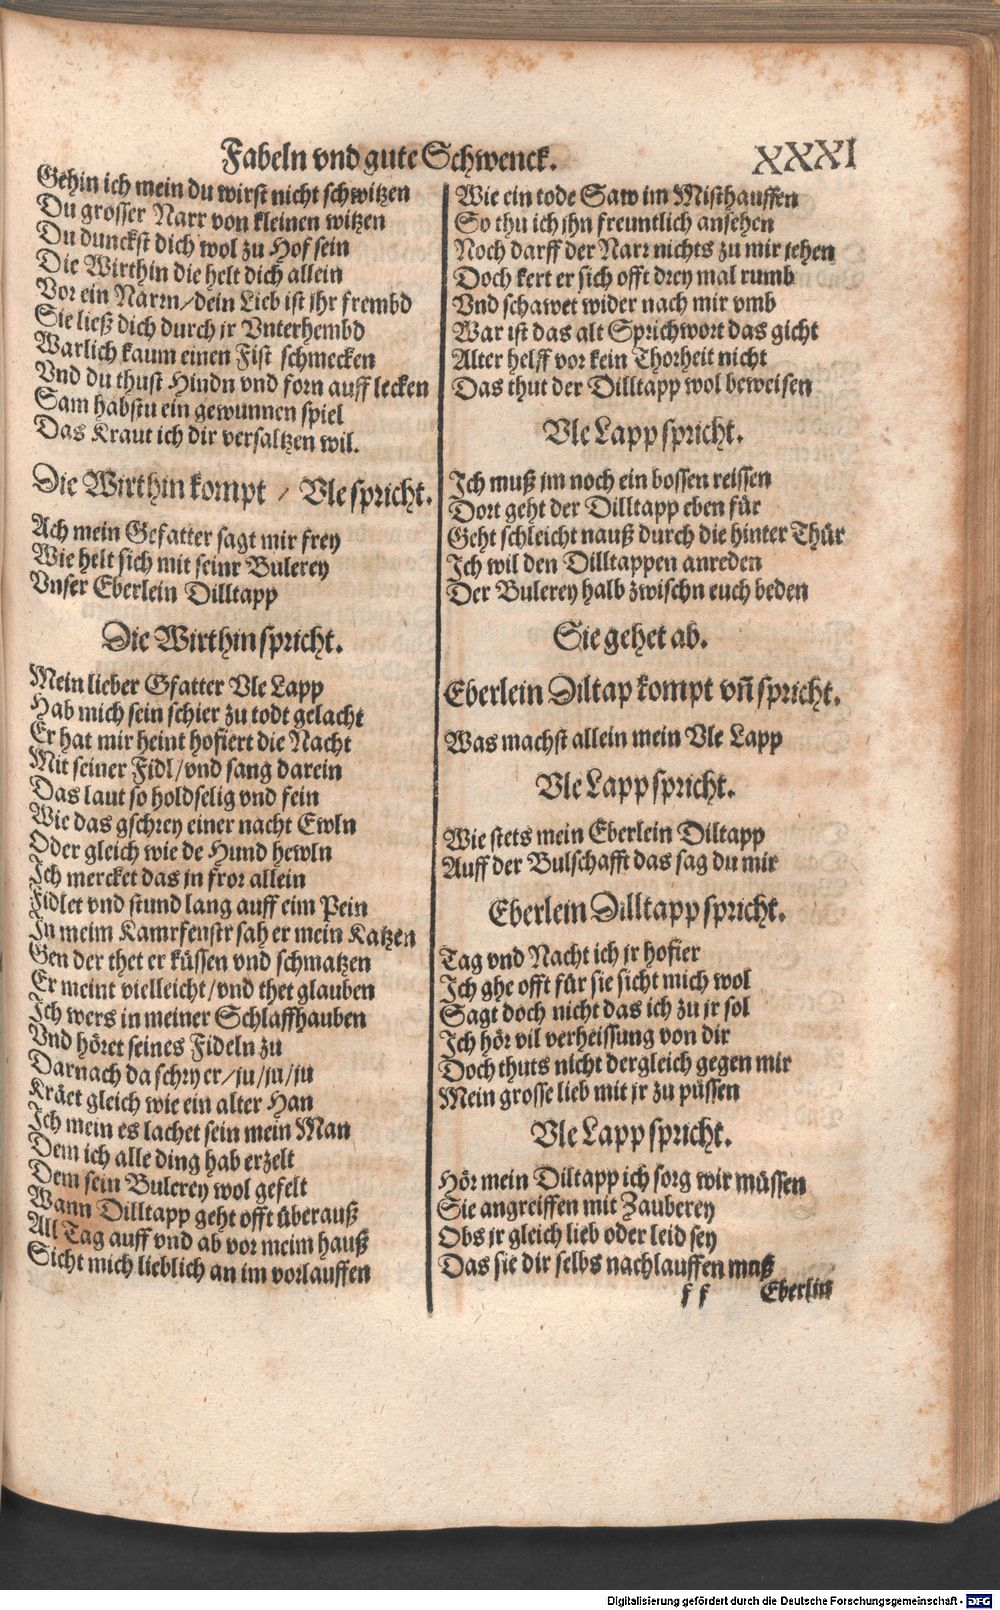 Fabeln vnd gute Schwenck.
XXXI
Gehin ich mein du wirst nicht schwitzen
Du grosser Narr von kleinen witzen
Du dunckst dich wol zu Hof sein
Die Wirthin die helt dich allein
Vor ein Narrn/dein Lieb ist jhr frembd
Sie ließ dich durch jr Vnterhembd
Warlich kaum einen Fist schmecken
Vnd du thust Hindn vnd forn auff lecken
Sam habstu ein gewunnen spiel
Das Kraut ich dir versaltzen wil.
Die Wirthin kompt / Vle spricht.
Ach mein Gefatter sagt mir frey
Wie helt sich mit seinr Bulerey
Vnser Eberlein Dilltapp
Die Wirthin spricht.
Mein lieber Gfatter Vle Lapp
Hab mich sein schier zu todt gelacht
Er hat mir heint hofiert die Nacht
Mit seiner Fidl/vnd sang darein
Das laut so holdselig vnd fein
Wie das gschrey einer nacht Ewln
Oder gleich wie de Hund hewln
Ich mercket das jn fror allein
Fidlet vnd stund lang auff eim Pein
In meim Kamrfenstr sah er mein Katzen
Gen der thet er küssen vnd schmatzen
Er meint vielleicht/vnd thet glauben
Ich wers in meiner Schlaffhauben
Vnd höret seines Fideln zu
Darnach da schry er/ju/ju/ju
Kräet gleich wie ein alter Han
Ich mein es lachet sein mein Man
Dem ich alle ding hab erzelt
Dem sein Bulerey wol gefelt
Wann Dilltapp geht offt überauß
All Tag auff vnd ab vor meim hauß
Sicht mich lieblich an im vorlauffen
Wie ein tode Saw im Misthauffen
So thu ich jhn freuntlich ansehen
Noch darff der Narr nichts zu mir jehen
Doch kert er sich offt drey mal rumb
Vnd schawet wider nach mir vmb
War ist das alt Sprichwort das gicht
Alter helff vor kein Thorheit nicht
Das thut der Dilltapp wol beweisen
Vle Lapp spricht.
Ich muß jm noch ein bossen reissen
Dort geht der Dilltapp eben für
Geht schleicht nauß durch die hinter Thür
Ich wil den Dilltappen anreden
Der Bulerey halb zwischn euch beden
Sie gehet ab.
Eberlein Diltap kompt vn̄ spricht.
Was machst allein mein Vle Lapp
Vle Lapp spricht.
Wie stets mein Eberlein Diltapp
Auff der Bulschafft das sag du mir
Eberlein Dilltapp spricht.
Tag vnd Nacht ich jr hofier
Ich ghe offt für sie sicht mich wol
Sagt doch nicht das ich zu jr sol
Ich hör vil verheissung von dir
Doch thuts nicht dergleich gegen mir
Mein grosse lieb mit jr zu püssen
Vle Lapp spricht.
Hör mein Diltapp ich sorg wir müssen
Sie angreiffen mit Zauberey
Obs jr gleich lieb oder leid sey
Das sie dir selbs nachlauffen muß
f f Eberlin
Digitalisierung gefördert durch die Deutsche Forschungsgemeinschaft - DFG